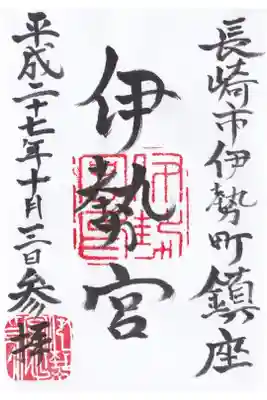 長崎市伊勢町鎮座
伊勢宮
平成二十七年十月三日参拝